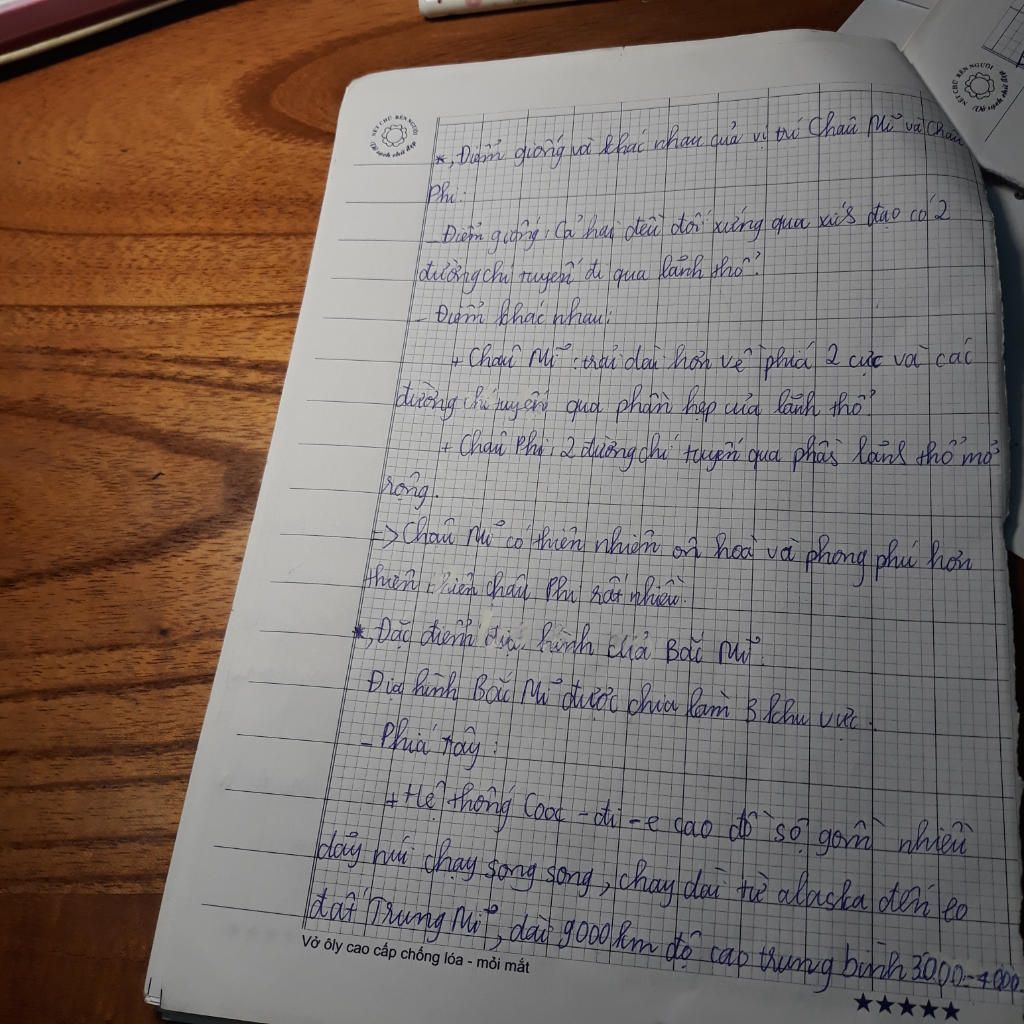 NÉT CHỮ NẾT NGƯỜI
*, Điểm giống và khác nhau của vị trí Châu Mĩ và Châu
Phi:
- Điểm giống: Cả hai đều đối xứng qua xích đạo có 2
đường chí tuyến đi qua lãnh thổ.
- Điểm khác nhau:
+ Châu Mĩ: trải dài hơn về phía 2 cực và các
đường chí tuyến qua phần hẹp của lãnh thổ.
+ Châu Phi: 2 đường chí tuyến qua phần lãnh thổ mở
rộng.
=> Châu Mĩ có thiên nhiên ôn hoà và phong phú hơn
thiên nhiên châu Phi rất nhiều.
*, Đặc điểm địa hình của Bắc Mĩ.
Địa hình Bắc Mĩ được chia làm 3 khu vực.
- Phía tây:
+ Hệ thống Cooc - đi - e cao đồ sộ gồm nhiều
dãy núi chạy song song, chạy dài từ alaska đến eo
đất Trung Mĩ, dài 9000km độ cao trung bình 3000-4000
Vở ôly cao cấp chống lóa - mỏi mắt